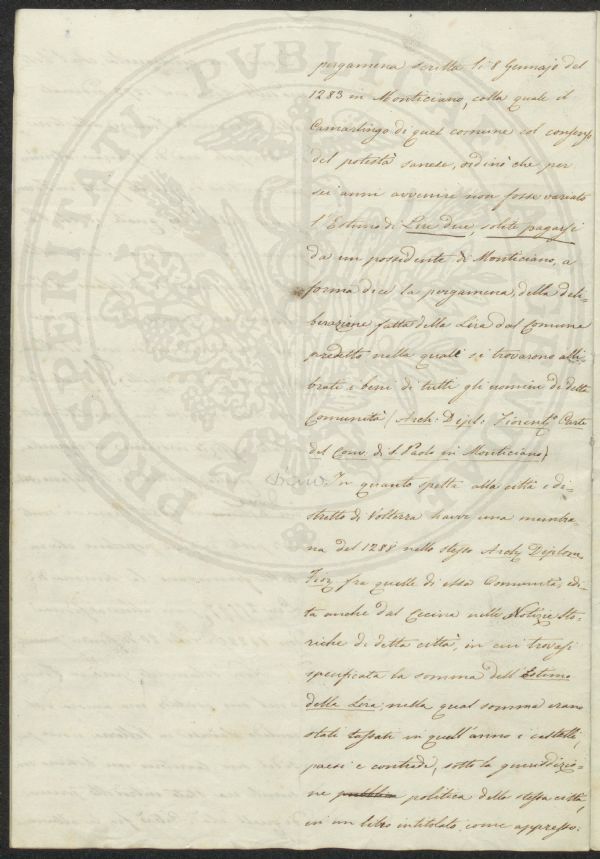 pergamena scritta li 8 Gennajo del
1283 in Monticiano, colla quale il
Camarlingo di quel comune col consenso
del potestà sanese, ordinò che per
sei anni avvenire non fosse variato
l'Estimo di Lire due, solite pagarsi
da un possidente di Monticiano, a
forma dice la pergamena, della deli-
berazione fatta della Lira dal Comune
predetto nella quale si trovarono alli-
brati i beni di tutti gli uomini di detta
Comunità (Arch: Dipl: Fiorent.o Carte
del Conv. di S. Paolo in Monticiano)
In quanto spetti alla città e di-
stretto di Volterra havvi una membra-
na del 1288 nello stesso Arch. Diplom.
Fior. fra quelle di essa Comunità, edi-
ta anche dal Cecina nelle Notizie Sto-
riche di detta città, in cui trovasi
specificata la somma dell'Estimo
della Lira; nella qual somma erano
stati tassati in quell'anno i castelli,
paesi e contrade, sotto la giurisdizio-
ne politica della stessa città,
in un libro intitolato, come appresso:
PROSPERITATI PVBLICAE